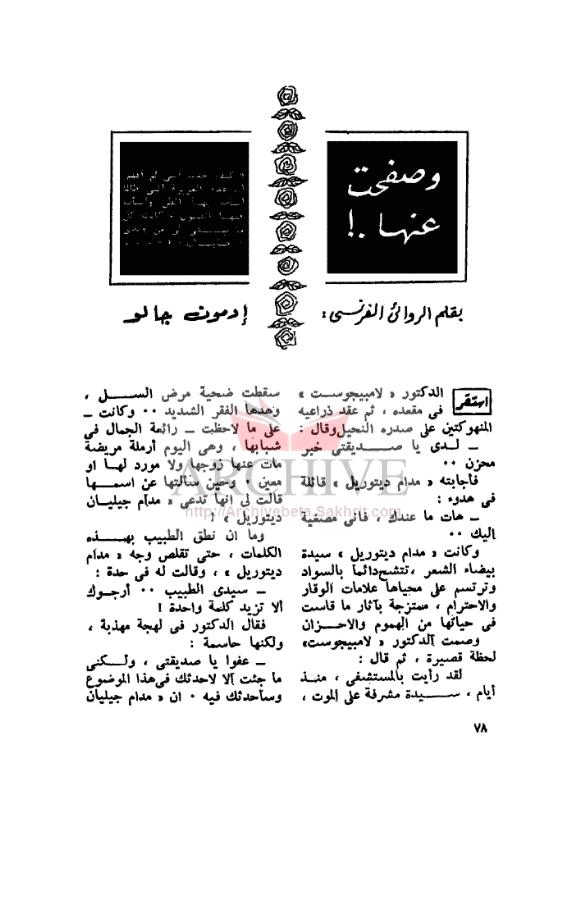 وصفحت
عنها .!
بقلم الروائى الفرنسى : إدمون جالو
استقر الدكتور « لامبيجوست »
فى مقعده ، ثم عقد ذراعيه
المنهوكتين على صدره النحيل وقال :
ـ لدى يا صديقتى خبر
محزن ٠٠
فأجابته « مدام ديتوريل » قائلة
فى هدوء :
ـ هات ما عندك ، فانى مصغية
اليك ٠٠
وكانت « مدام ديتوريل » سيدة
بيضاء الشعر ، تتشح دائما بالسواد
وترتسم على محياها علامات الوقار
والاحترام ، ممتزجة بآثار ما قاست
فى حياتها من الهموم والاحزان
وصمت الدكتور « لامبيجوست»
لحظة قصيرة ، ثم قال :
لقد رأيت بالمستشفى ، منذ
أيام ، سيدة مشرفة على الموت ،
سقطت ضحية مرض السل ،
وهدها الفقر الشديد ٠٠ وكانت ـ
على ما لاحظت ـ رائعة الجمال فى
شبابها ، وهى اليوم أرملة مريضة
مات عنها زوجها ولا مورد لها او
معين ٠ وحين سألتها عن اسمها
قالت لى انها تدعى « مدام جيليان
ديتوريل » !
وما ان نطق الطبيب بهذه
الكلمات ، حتى تقلص وجه « مدام
ديتوريل » ، وقالت له فى حدة :
ـ سيدى الطبيب ٠٠ أرجوك
ألا تزيد كلمة واحدة !
فقال الدكتور فى لهجة مهذبة ،
ولكنها حاسمة :
ـ عفوا يا صديقتى ، ولكنى
ما جئت الا لاحدثك فى هذا الموضوع
وسأحدثك فيه ٠ ان « مدام جيليان
٧٨
ARCHIVE
http://Archivebeta.Sakhrit.com